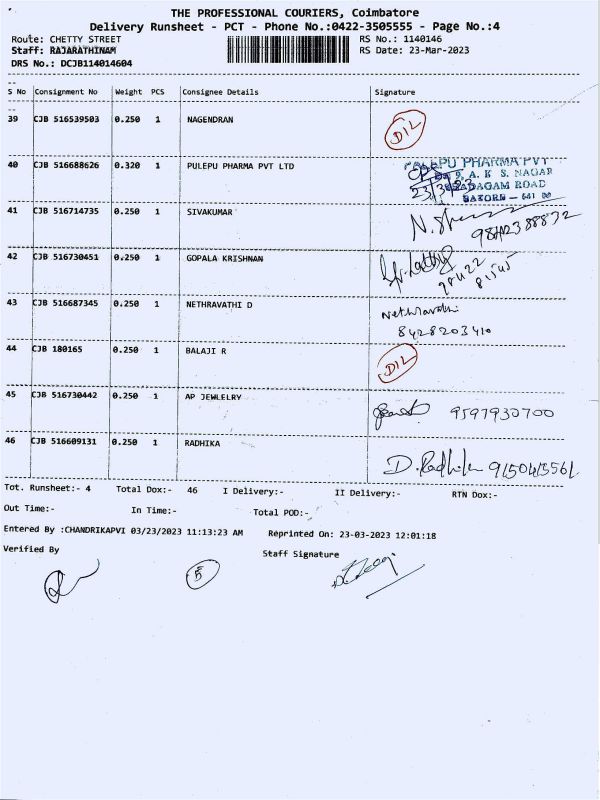 THE PROFESSIONAL COURIERS, Coimbatore
Delivery Runsheet - PCT - Phone No.:0422-3505555 - Page No.:4
Route: CHETTY STREET RS No.: 1140146
Staff: RAJARATHINAM RS Date: 23-Mar-2023
DRS No.: DCJB114014604
S No Consignment No Weight PCS Consignee Details Signature
39 CJB 516539503 0.250 1 NAGENDRAN D/L
40 CJB 516688626 0.320 1 PULEPU PHARMA PVT LTD
PULEPU PHARMA PVT
9, A. K S. NAGAR
ADAGAM ROAD
23/3/23
41 CJB 516714735 0.250 1 SIVAKUMAR
42 CJB 516730451 0.250 1 GOPALA KRISHNAN
98422
81545
43 CJB 516687345 0.250 1 NETHRAVATHI D Nethravathi
8428203410
44 CJB 180165 0.250 1 BALAJI R D/L
45 CJB 516730442 0.250 1 AP JEWLELRY 9597930700
46 CJB 516609131 0.250 1 RADHIKA D. Radhika
Tot. Runsheet:- 4 Total Dox:- 46 I Delivery:- II Delivery:- RTN Dox:-
Out Time:- In Time:- Total POD:-
Entered By :CHANDRIKAPVI 03/23/2023 11:13:23 AM Reprinted On: 23-03-2023 12:01:18
Verified By Staff Signature